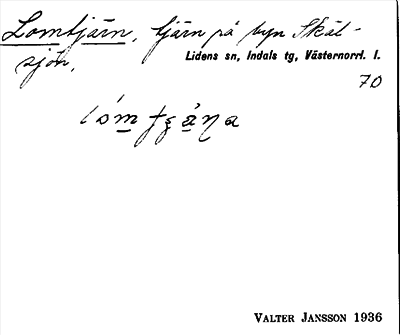 Lomtjärn, tjärn på byn Skäl-
sjön.
Lidens sn, Indals tg, Västernorrl. l.
70
VALTER JANSSON 1936